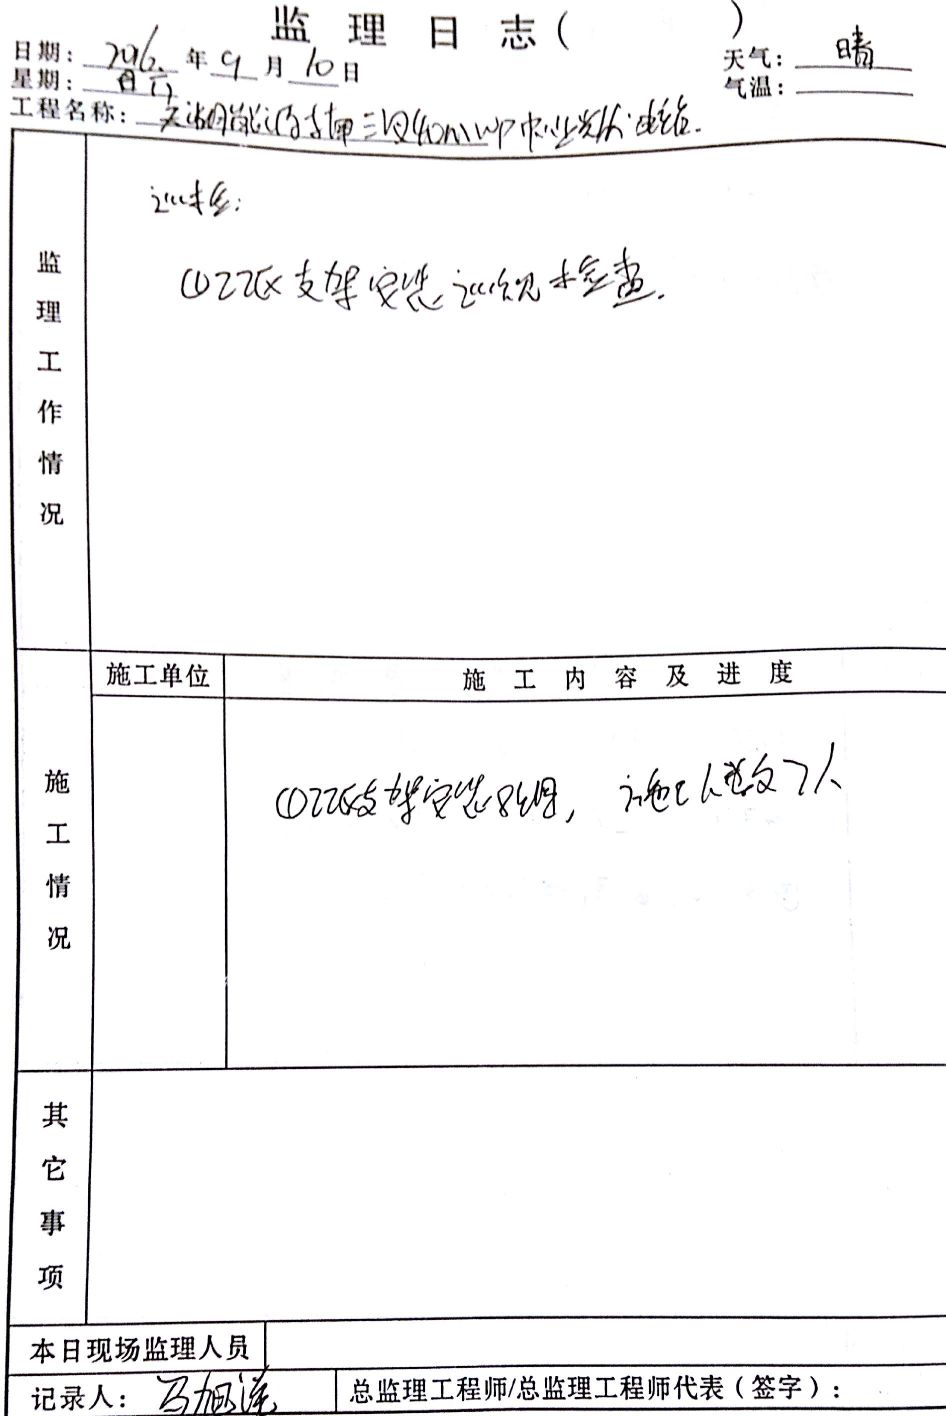 监理日志( )
日期: 2016 年 9 月 10 日 天气: 晴
星期: 六 气温:
工程名称: 三 40MWP 电站.
监理工作情况
巡检:
①22区支架安装巡视检查.
施工单位 施工内容及进度
施工情况
①22区支架安装8组, 施工人数7人
其它事项
本日现场监理人员
记录人: 马旭 总监理工程师/总监理工程师代表(签字):